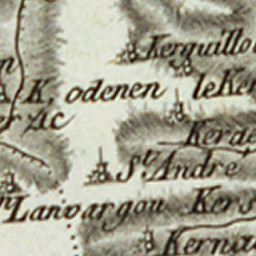 Kerguillo
n
K. odenen le Ker
er zic
Kerde
St. André
Lanvargou Kers
Kerna